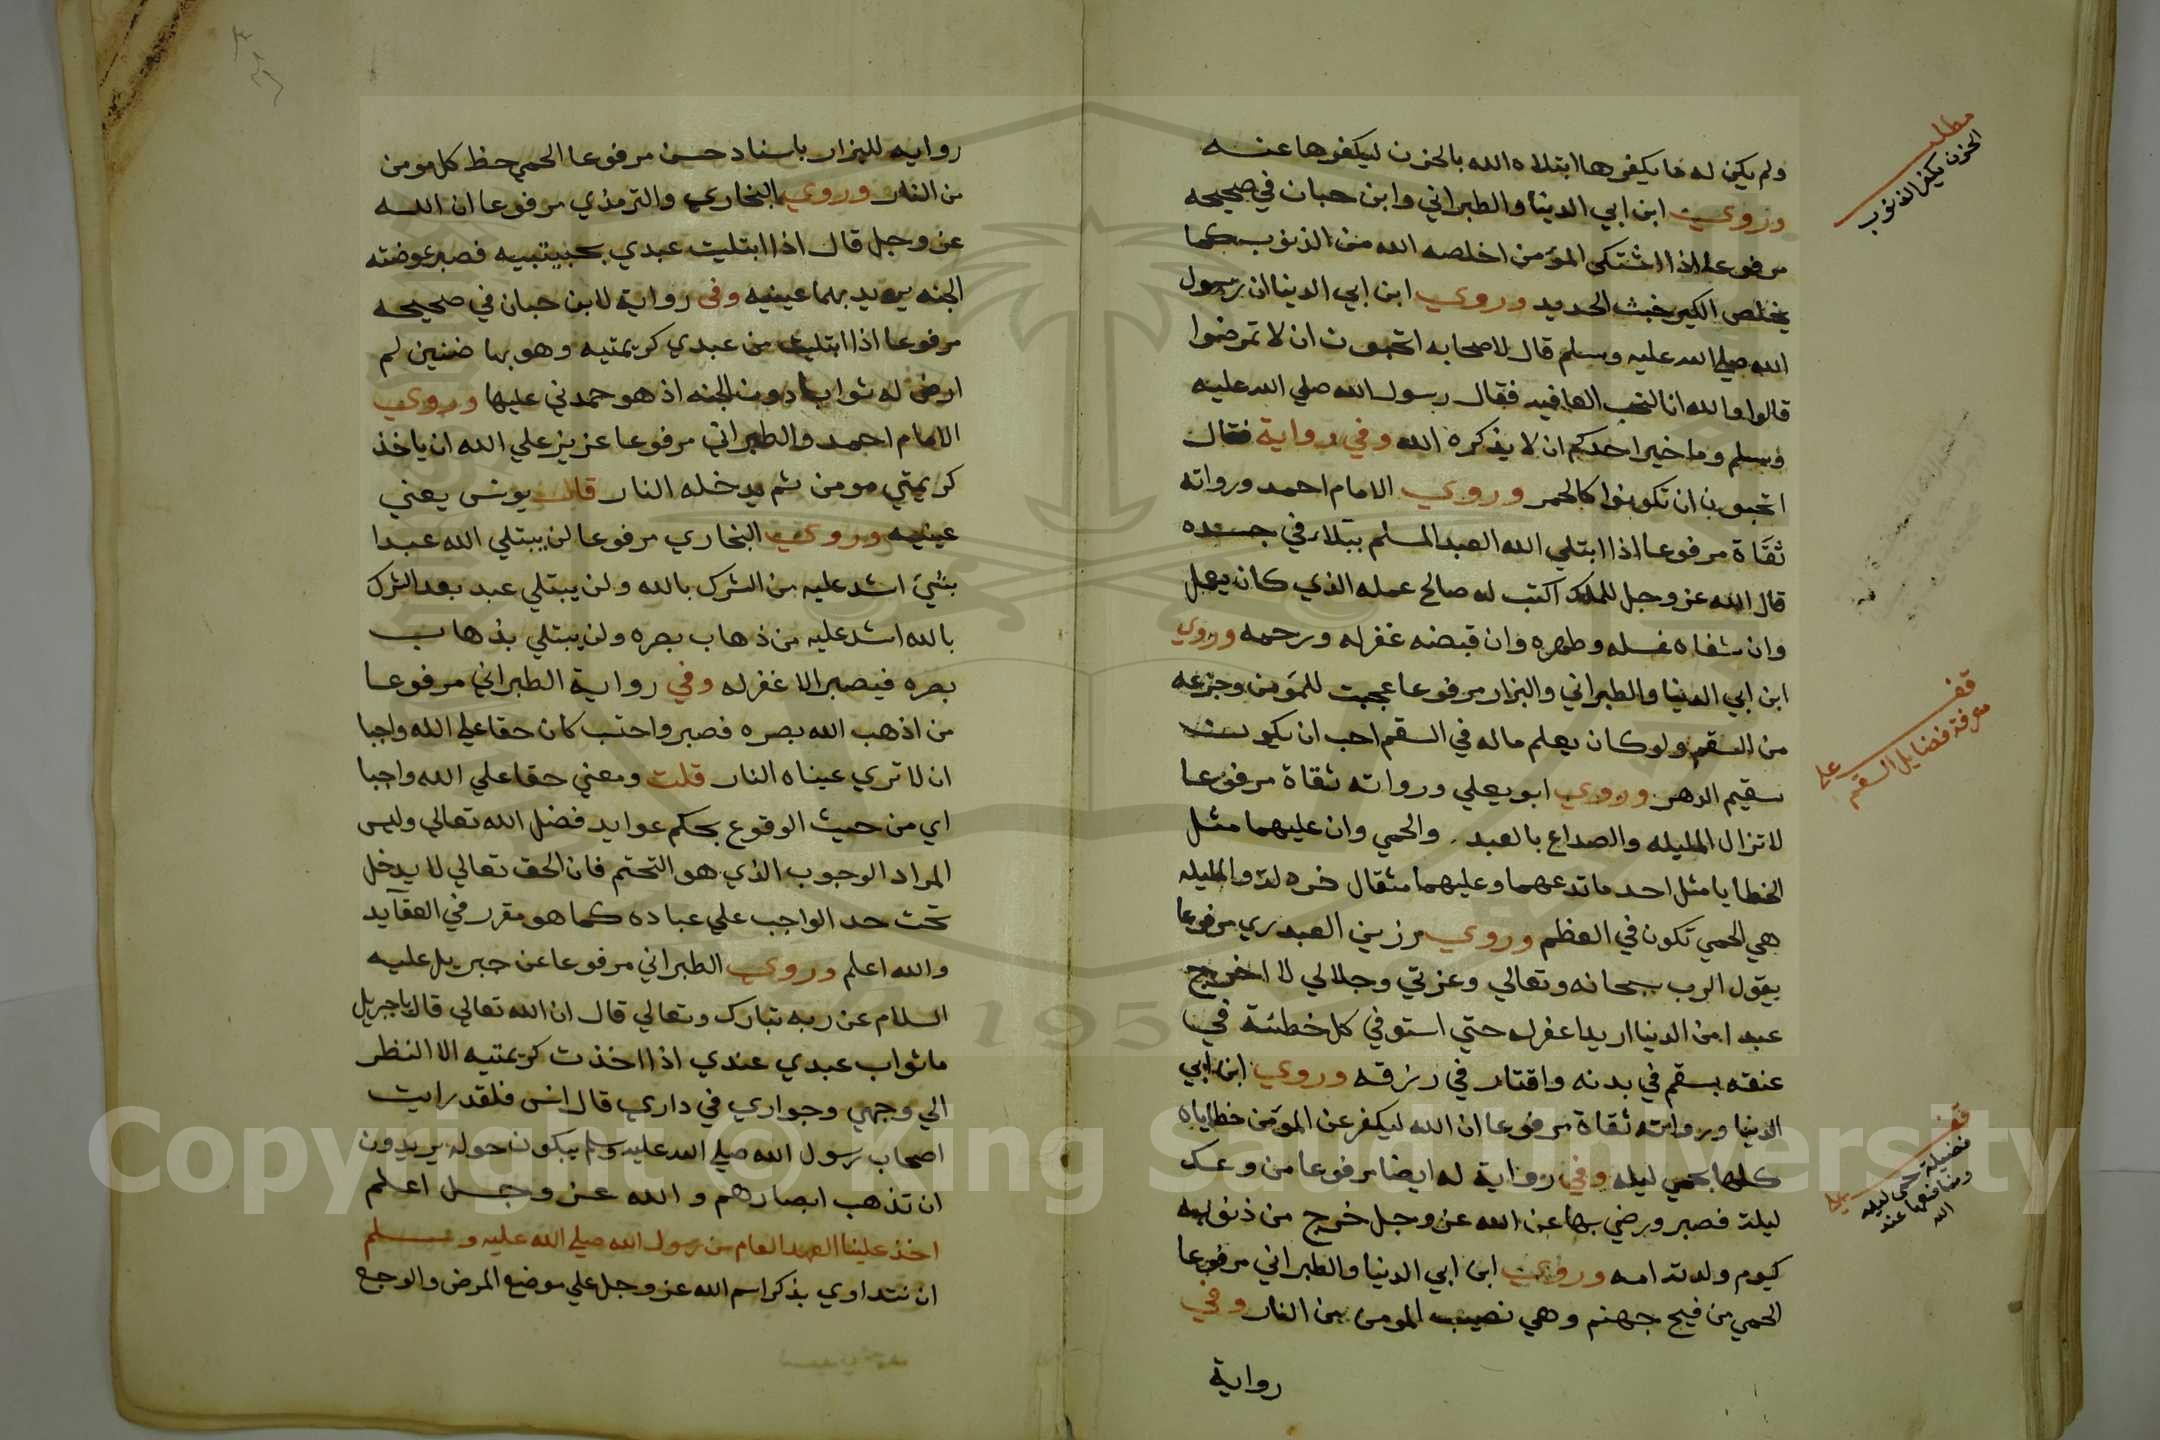 ولم يكن له ما يكفرها ابتلاه الله بالحزن ليكفرها عنه
وروي ابن ابي الدنيا والطبراني وابن حبان في صحيحه
مرفوعا اذا اشتكى المؤمن اخلصه الله من الذنوب كما
يخلص الكير خبث الحديد وروي ابن ابي الدنيا ان رسول
الله صلي الله عليه وسلم قال لاصحابه اتحبون ان لا تمرضوا
قالوا والله انا لنحب العافيه فقال رسول الله صلي الله عليه
وسلم وما خير احدكم ان لا يذكره الله وفي رواية فقال
اتحبون ان تكونوا كالحمر وروي الامام احمد ورواته
ثقاة مرفوعا اذا ابتلي الله العبد المسلم ببتلاء في جسده
قال الله عز وجل للملك اكتب له صالح عمله الذي كان يعمل
وان شفاه غسله وطهره وان قبضه غفر له ورحمه وروي
ابن ابي الدنيا والطبراني والبزار مرفوعا عجبت للمؤمن وجزعه
من السقم ولو كان يعلم ما له في السقم احب ان يكون
سقيم الدهر وروي ابو يعلي ورواته ثقاة مرفوعا
لا تزال المليله والصداع بالعبد والحمي وان عليهما مثل
الخطايا مثل احد ما تدعهما وعليهما مثقال خردلة والمليله
هي الحمي تكون في العظم وروي رزين العبدري مرفوعا
يقول الرب سبحانه وتعالي وعزتي وجلالي لا اخرج
عبدا من الدنيا اريد اغفر له حتي استوفي كل خطئة في
عنقه بسقم في بدنه واقتار في رزقه وروي ابن ابي
الدنيا ورواته ثقاة مرفوعا ان الله ليكفر عن المؤمن خطاياه
كلها بحمي ليله وفي رواية له ايضا مرفوعا من وعك
ليلة فصبر ورضي بها عن الله عز وجل خرج من ذنوبه
كيوم ولدته امه وروي ابن ابي الدنيا والطبراني مرفوعا
الحمي من فيح جهنم وهي نصيب المومن من النار وفي
رواية
مطلب
الحزن يكفر الذنوب
قف
علي
معرفة فضايل السقم
قف
علي
فضيلة حمي ليله
ومنافعها عند
الله
روايه للبزار باسناد حسن مرفوعا الحمي حظ كل مومن
من النار وروي البخاري والترمذي مرفوعا ان الله
عز وجل قال اذا ابتليت عبدي بحبيبتيه فصبر عوضته
الجنه يريد بهما عينيه وفي رواية لابن حبان في صحيحه
مرفوعا اذا ابتليت من عبدي كريمتيه وهو بها ضنين لم
ارض له ثوابا دون الجنه اذ هو حمدني عليها وروي
الامام احمد والطبراني مرفوعا عزيز علي الله ان ياخذ
كريمتي مومن ثم يدخله النار قال يونس يعني
عينيه وروي البخاري مرفوعا لن يبتلي الله عبدا
بشيء اشد عليه من الشرك بالله ولن يبتلي عبد بعد الشرك
بالله اشد عليه من ذهاب بصره ولن يبتلي بذهاب
بصره فيصبر الا غفر له وفي رواية الطبراني مرفوعا
من اذهب الله بصره فصبر واحتسب كان حقا علي الله واجبا
ان لا تري عيناه النار قلت ومعني حقا علي الله واجبا
اي من حيث الوقوع بحكم عوايد فضل الله تعالي وليس
المراد الوجوب الذي هو التحتم فان الحق تعالي لا يدخل
تحت حد الواجب علي عباده كما هو مقرر في العقايد
والله اعلم وروي الطبراني مرفوعا عن جبريل عليه
السلام عن ربه تبارك وتعالي قال ان الله تعالي قال يا جبريل
ما ثواب عبدي عندي اذا اخذت كريمتيه الا النظر
الي وجهي وجواري في داري قال انس فلقد رايت
اصحاب رسول الله صلي الله عليه وسلم يبكون حوله يريدون
ان تذهب ابصارهم والله عز وجل اعلم
اخذ علينا العهد العام من رسول الله صلي الله عليه وسلم
ان نتداوي بذكر اسم الله عز وجل علي موضع المرض والوجع
1957
Copyright © King Saud University